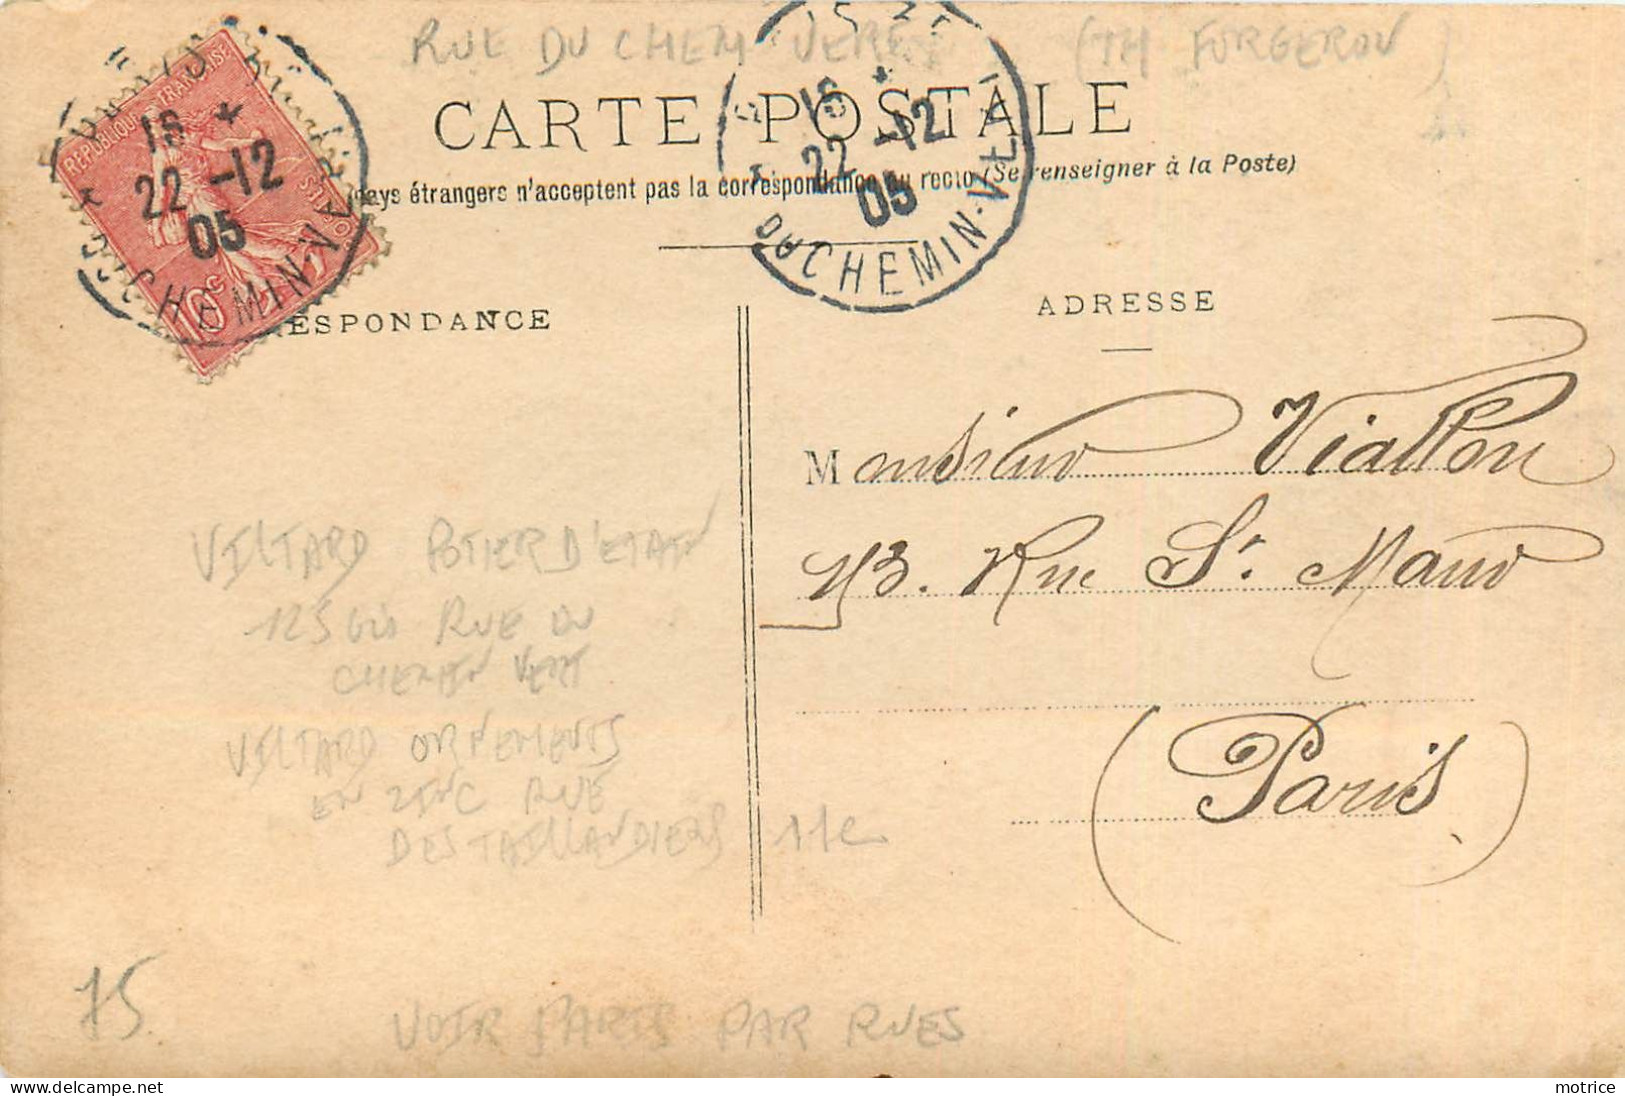 RUE DU CHEM VERT (TH FORGERON)
CARTE POSTALE
pays étrangers n'acceptent pas la correspondance au recto (Se renseigner à la Poste)
REPUBLIQUE FRANÇAISE
POSTES
10c
16 *
22 -12
05
DU CHEMIN-VERT
16 *
22 -12
05
DU CHEMIN-VERT
ESPONDANCE
ADRESSE
Monsieur Viallon
113. Rue St. Maur
(Paris)
VILTARD POTIER D'ETAIN
125 bis RUE DU
CHEMIN VERT
VILTARD ORNEMENTS
EN ZINC RUE
DES TAILLANDIERS 11e
75
VOIR PARIS PAR RUES
motrice